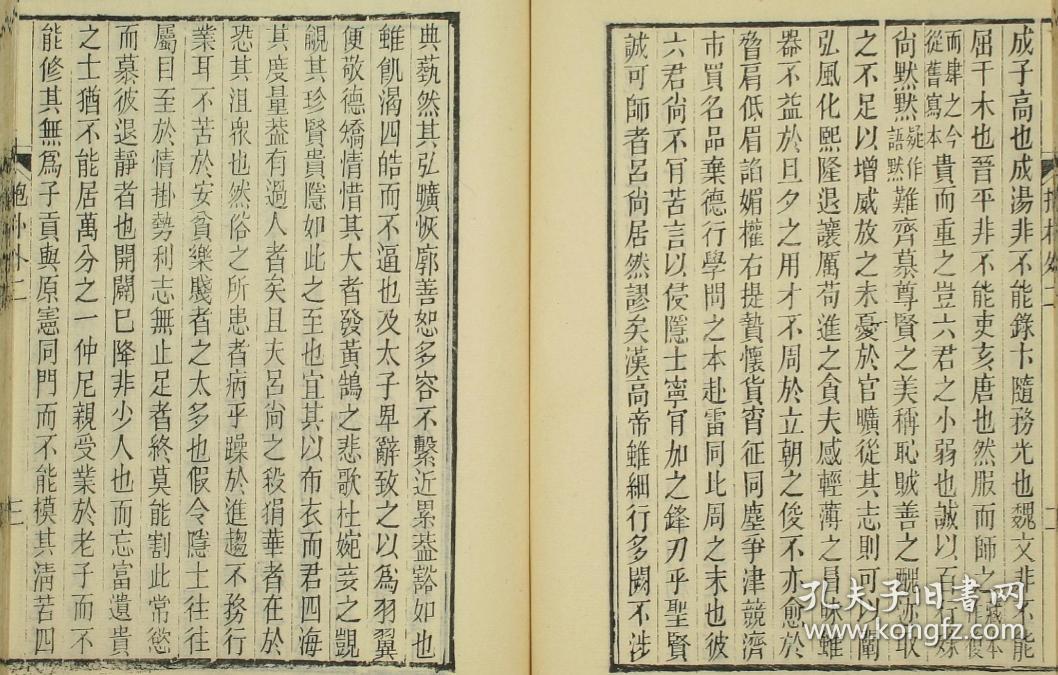 成子高也成湯非不能錄卞隨務光也魏文非不能
屈干木也晉平非不能吏亥唐也然服而師之藏本
而肆之今從舊寫本貴而重之豈六君之小弱也誠以百行殊
尙默默疑作語默難齊慕尊賢之美稱恥賊善之醜跡取
之不足以增威放之未憂於官曠從其志則可以闡
弘風化熙隆退讓厲苟進之貪夫感輕薄之冒昧雖
器不益於旦夕之用才不周於立朝之俊不亦愈於
脅肩低眉諂媚權右提贄懷貨宵征同塵爭津競濟
市買名品棄德行學問之本赴雷同比周之末也彼
六君尙不肎苦言以侵隱士寧肎加之鋒刃乎聖賢
誠可師者呂尙居然謬矣漢高帝雖細行多闕不涉
典藝然其弘曠恢廓善恕多容不繫近累葢豁如也
雖飢渴四皓而不逼也及太子卑辭致之以爲羽翼
便敬德矯情惜其大者發黃鵠之悲歌杜婉妾之覬
覦其珍賢貴隱如此之至也宜其以布衣而君四海
其度量葢有過人者矣且夫呂尙之殺狷華者在於
恐其沮衆也然俗之所患者病乎躁於進趨不務行
業耳不苦於安貧樂賤者之太多也假令隱士往往
屬目至於情掛勢利志無止足者終莫能割此常慾
而慕彼退靜者也開闢已降非少人也而忘富遺貴
之士猶不能居萬分之一仲尼親受業於老子而不
能修其無爲子貢與原憲同門而不能模其清苦四
抱朴外二
三
孔夫子旧书网
www.kongfz.com